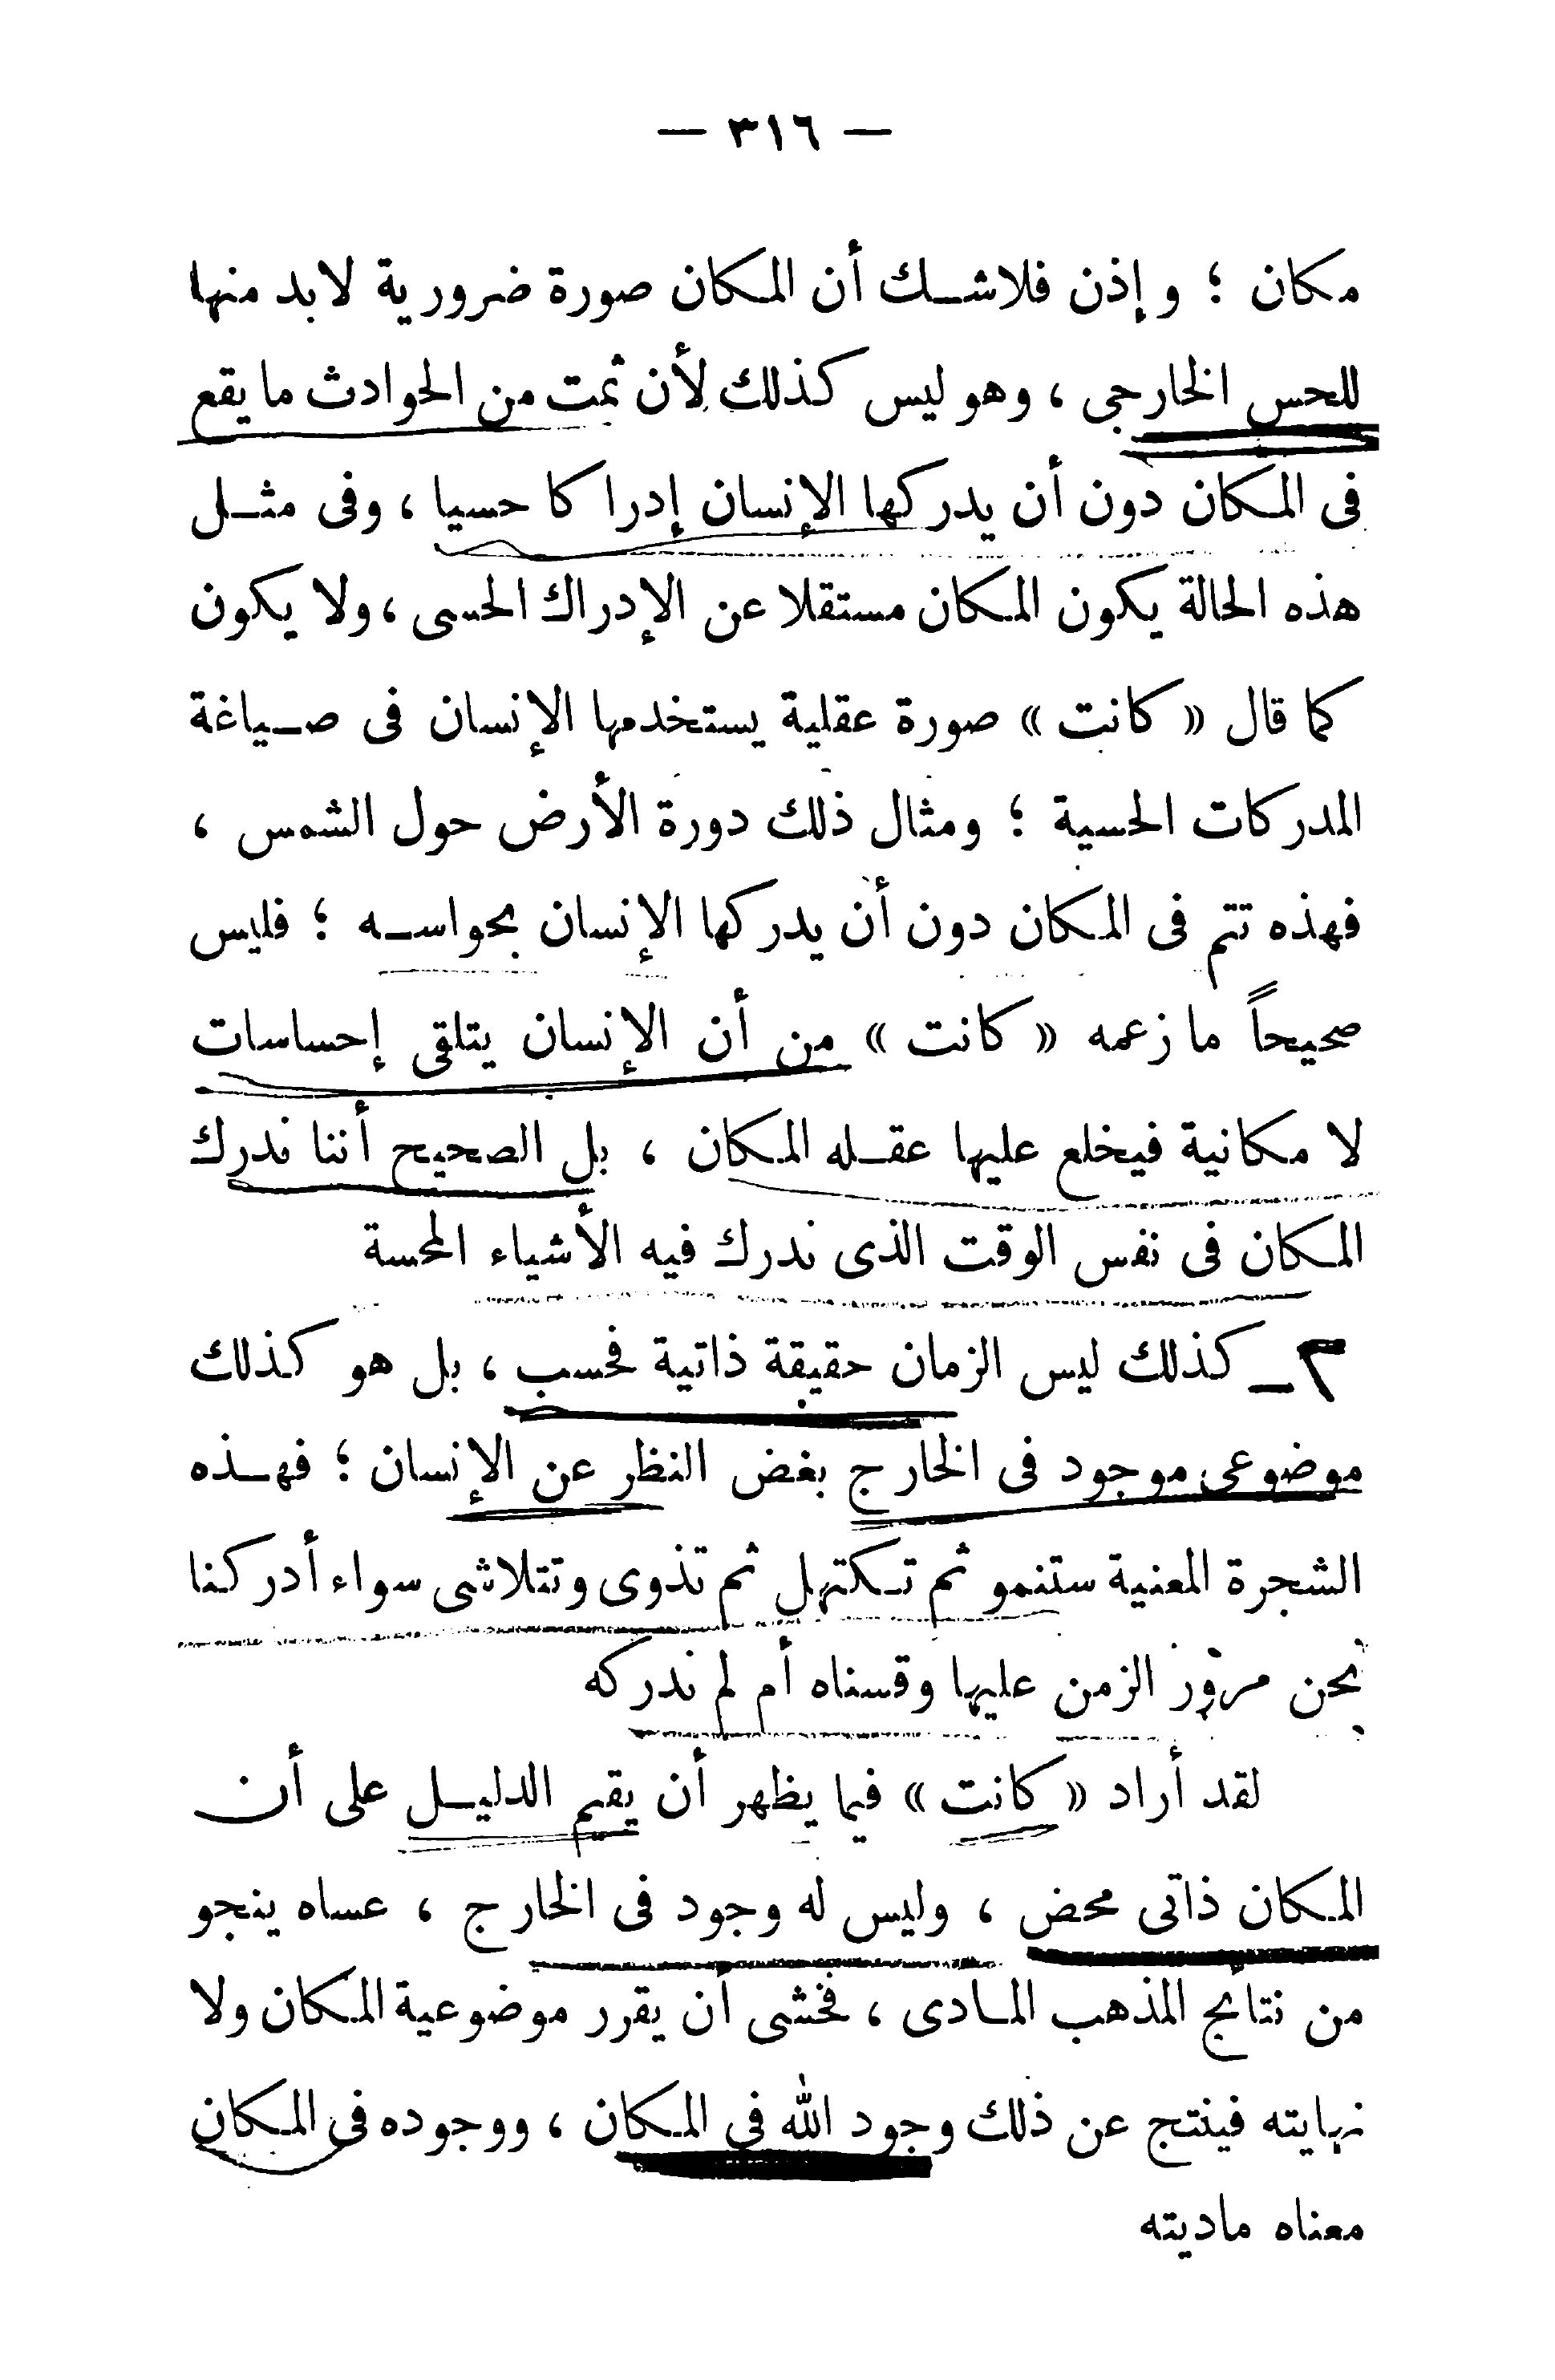 — ٣١٦ —
مكان ؛ وإذن فلاشك أن المكان صورة ضرورية لابد منها
للحس الخارجى ، وهو ليس كذلك لأن ثمت من الحوادث ما يقع
فى المكان دون أن يدركها الإنسان إدراكا حسيا ، وفى مثل
هذه الحالة يكون المكان مستقلا عن الإدراك الحسى ، ولا يكون
كما قال « كانت » صورة عقلية يستخدمها الإنسان فى صياغة
المدركات الحسية ؛ ومثال ذلك دورة الأرض حول الشمس ،
فهذه تتم فى المكان دون أن يدركها الإنسان بحواسه ؛ فليس
صحيحاً ما زعمه « كانت » من أن الإنسان يتلقى إحساسات
لا مكانية فيخلع عليها عقله المكان ، بل الصحيح أننا ندرك
المكان فى نفس الوقت الذى ندرك فيه الأشياء المحسة
٢ — كذلك ليس الزمان حقيقة ذاتية فحسب ، بل هو كذلك
موضوعى موجود فى الخارج بغض النظر عن الإنسان ؛ فهذه
الشجرة المعنية ستنمو ثم تكتهل ثم تذوى وتتلاشى سواء أدركنا
نحن مرور الزمن عليها وقسناه أم لم ندركه
لقد أراد « كانت » فيما يظهر أن يقيم الدليل على أن
المكان ذاتى محض ، وليس له وجود فى الخارج ، عساه ينجو
من نتائج المذهب المادى ، فخشى أن يقرر موضوعية المكان ولا
نهايته فينتج عن ذلك وجود الله فى المكان ، ووجوده فى المكان
معناه ماديته